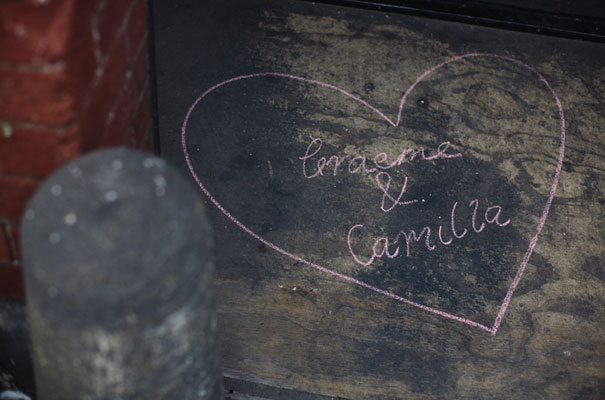 Graeme
&
Camilla